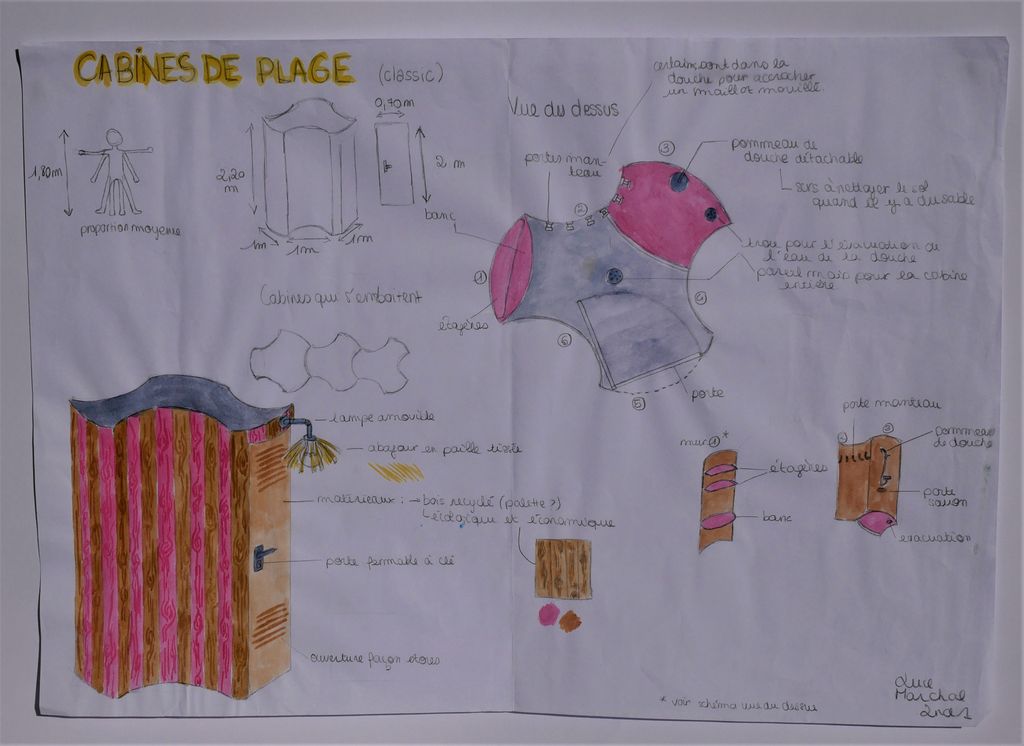 CABINES DE PLAGE (classic)
1,80m
proportion moyenne
2,20
m
1m
1m
1m
0,70m
2 m
banc
Vue du dessus
certains sont dans la
douche pour accrocher
un maillot mouillé.
portes man-
teau
pommeau de
douche détachable
sers à nettoyer le sol
quand il y a du sable
trou pour l'évacuation de
l'eau de la douche
pareil mais pour la cabine
entière
étagères
porte
1
2
3
4
5
6
Cabines qui s'emboitent
lampe amovible
abajour en paille tissée
matériaux : → bois recyclé (palette ?)
écologique et économique
porte fermable à clé
ouverture façon stores
mur 1 *
étagères
banc
porte manteau
2
3
pommeau
de douche
porte
savon
évacuation
* voir schéma vue du dessus
Marchal
2nde1